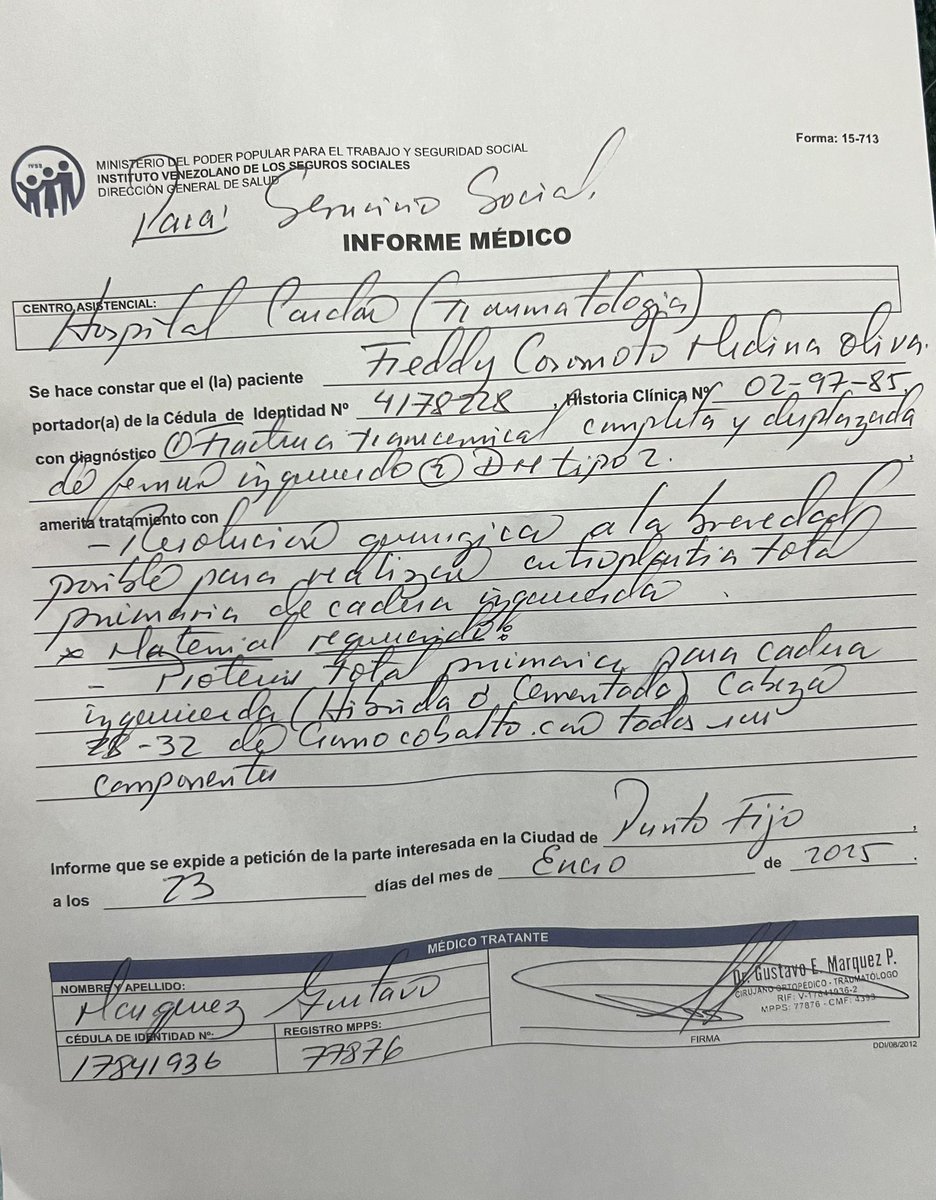 IVSS
Forma: 15-713
MINISTERIO DEL PODER POPULAR PARA EL TRABAJO Y SEGURIDAD SOCIAL
INSTITUTO VENEZOLANO DE LOS SEGUROS SOCIALES
DIRECCIÓN GENERAL DE SALUD
Para: Servicio Social.
INFORME MÉDICO
CENTRO ASISTENCIAL:
Hospital Cardón (Traumatologia)
Se hace constar que el (la) paciente Freddy Coromoto Medina Oliva.
portador(a) de la Cédula de Identidad Nº 4178228, Historia Clínica Nº 02-97-85.
con diagnóstico ① Fractura transcervical completa y desplazada
de femur izquierdo ② DM tipo 2.
amerita tratamiento con
- Resolucion quirurgica a la brevedad
posible para realizar artroplastia total
primaria de cadera izquierda.
* Material requerido:
- Protesis total primaria para cadera
izquierda (Hibrida ó Cementada) Cabeza
28-32 de Cromocobalto con todos sus
componentes
Informe que se expide a petición de la parte interesada en la Ciudad de Punto Fijo,
a los 23 días del mes de Enero de 2025.
MÉDICO TRATANTE
NOMBRE Y APELLIDO:
Marquez Gustavo
CÉDULA DE IDENTIDAD Nº:
17841936
REGISTRO MPPS:
77876
Dr. Gustavo E. Marquez P.
CIRUJANO ORTOPÉDICO - TRAUMATÓLOGO
RIF: V-17841936-2
MPPS: 77876 - CMF: 4393
FIRMA
DDI/08/2012